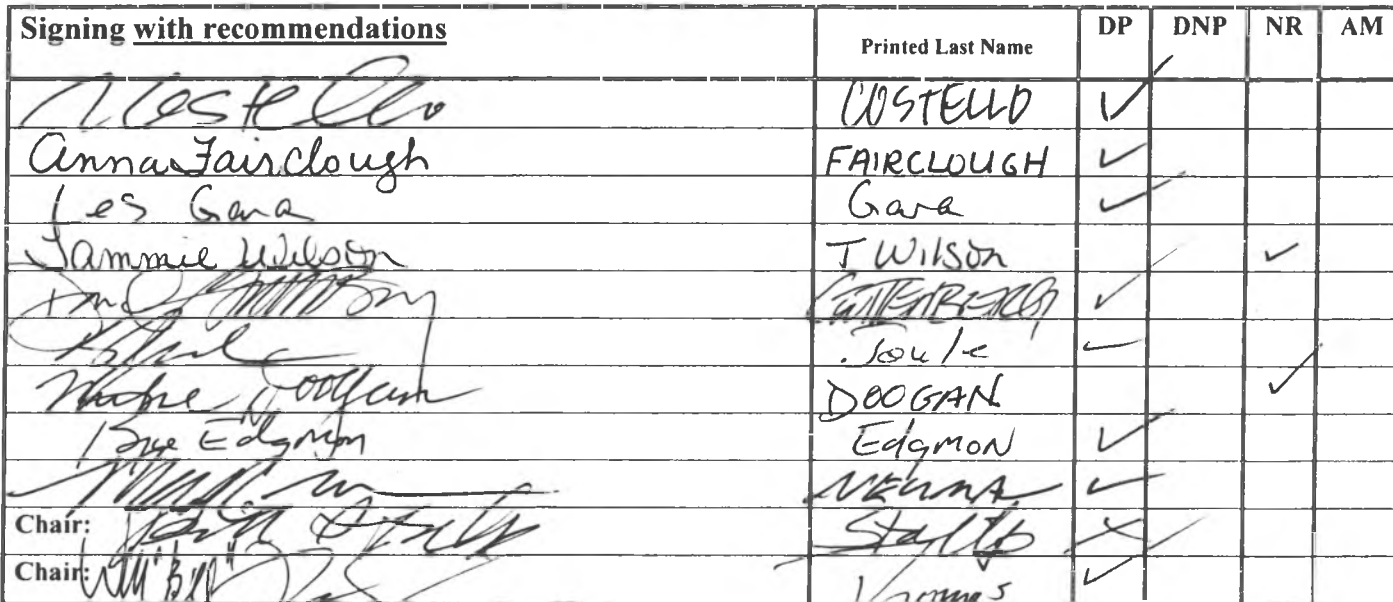 Signing with recommendations Printed Last Name DP DNP NR AM
Costello COSTELLO ✓
Anna Fairclough FAIRCLOUGH ✓
Les Gara Gara ✓
Tammie Wilson T Wilson ✓
GUTTENBERG ✓
Joule ✓
Mike Doogan DOOGAN ✓
Bryce Edgmon Edgmon ✓
NEUMAN ✓
Chair: Stoltze X
Chair: "Bill" Thomas ✓